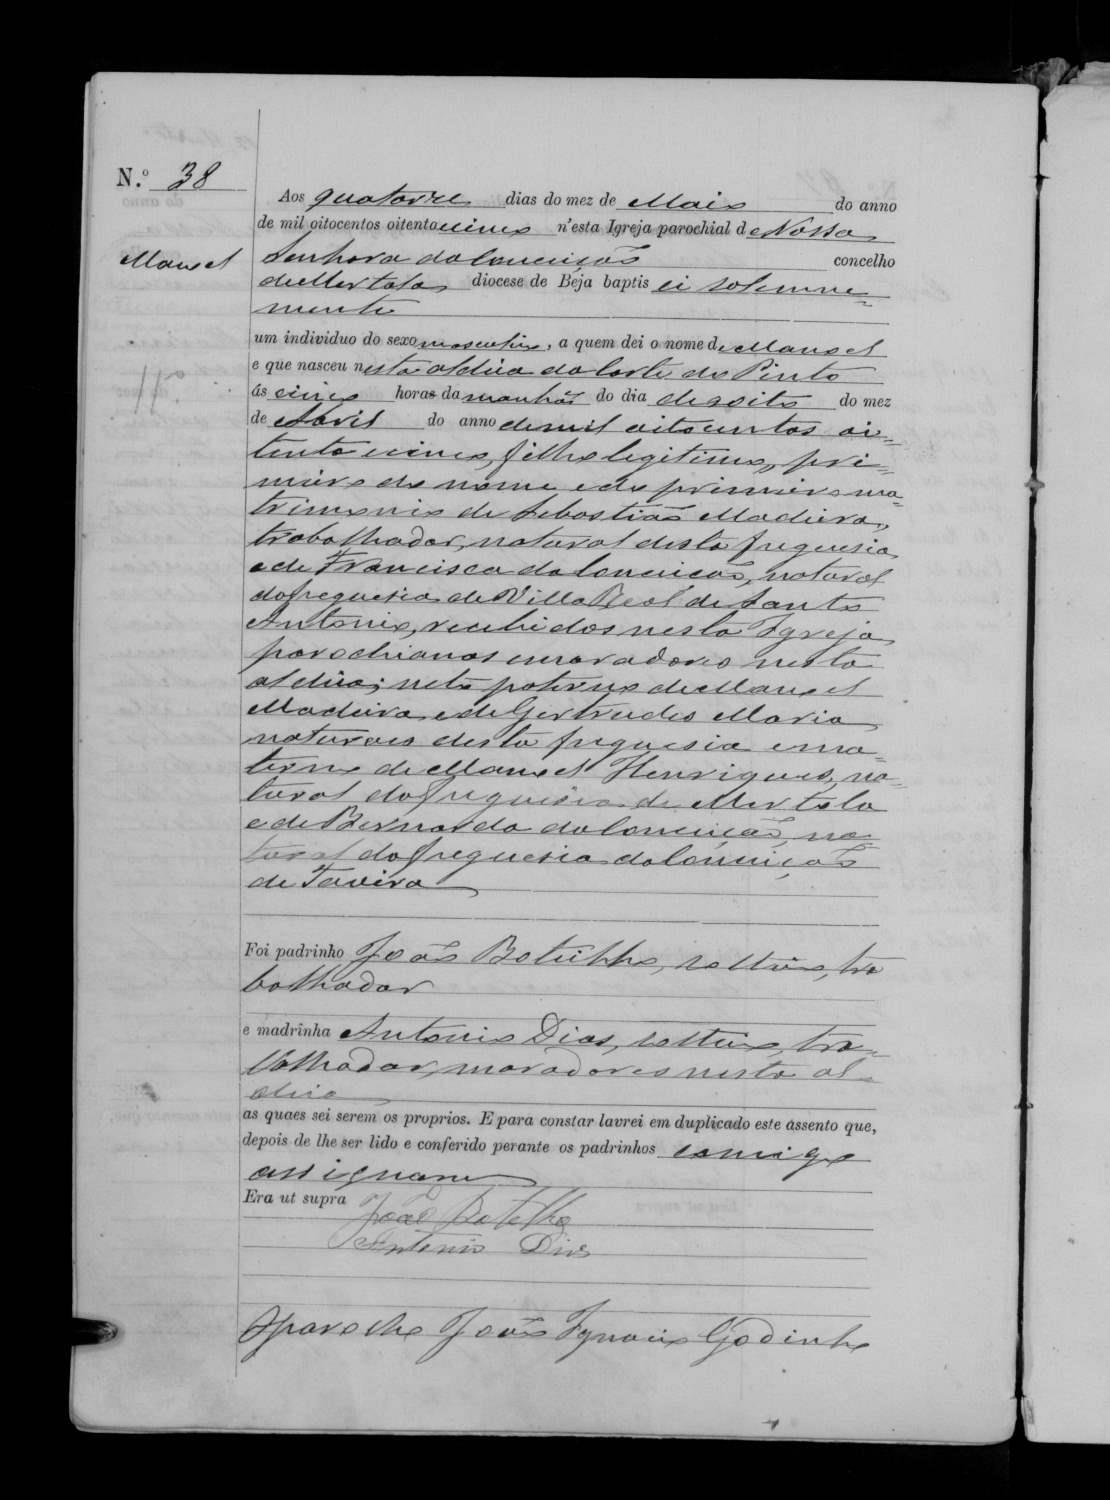 N.º 38
Aos quatorze dias do mez de Maio do anno
de mil oitocentos oitenta e cinco n'esta Igreja parochial de Nossa
Manoel Senhora da Conceição concelho
de Mertola diocese de Beja baptisei solemne=
mente
um individuo do sexo masculino, a quem dei o nome de Manoel
e que nasceu nesta aldeia da Corte do Pinto
ás cinco horas da manhã do dia desoito do mez
de Abril do anno de mil oitocentos oi=
tenta e cinco, filho legitimo, pri=
meiro do nome e do primeiro ma=
trimonio de Sebastião Madeira,
trabalhador, natural desta freguesia
e de Francisca da Conceicão, natural
da freguesia de Villa Real de Santo
Antonio, recebidos nesta Igreja,
parochianos e moradores nesta
aldeia; neto paterno de Manoel
Madeira e de Gertrudes Maria
naturaes desta freguesia e ma=
terno de Manoel Henriques, na=
tural da freguesia de Mertola
e de Bernarda da Conceição, na=
tural da freguesia da Conceição
de Tavira
Foi padrinho João Botelho, solteiro, tra
balhador
e madrinha Antonio Dias, solteiro, tra=
balhador, moradores nesta al=
deia
as quaes sei serem os proprios. E para constar lavrei em duplicado este assento que,
depois de lhe ser lido e conferido perante os padrinhos comigo
assignam
Era ut supra
João Botelho
Antonio Dias
O parocho João Ignacio Godinho